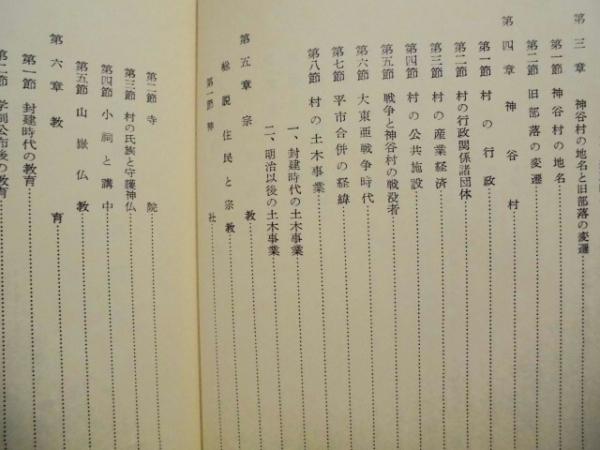 第三章 神谷村の地名と旧部落の変遷
第一節 神谷村の地名
第二節 旧部落の変遷
第四章 神谷村
第一節 村の行政
第二節 村の行政関係諸団体
第三節 村の産業経済
第四節 村の公共施設
第五節 戦争と神谷村の戦没者
第六節 大東亜戦争時代
第七節 平市合併の経緯
第八節 村の土木事業
一、封建時代の土木事業
二、明治以後の土木事業
第五章 宗教
総説 住民と宗教
第一節 神社
第二節 寺院
第三節 村の氏族と守護神仏
第四節 小祠と講中
第五節 山嶽仏教
第六章 教育
第一節 封建時代の教育
第二節 学制公布後の教育